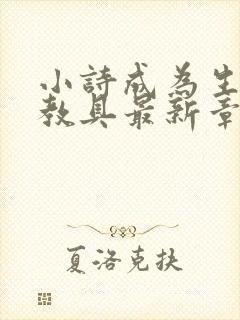 小詩成為生
教具最新章
夏洛克扶